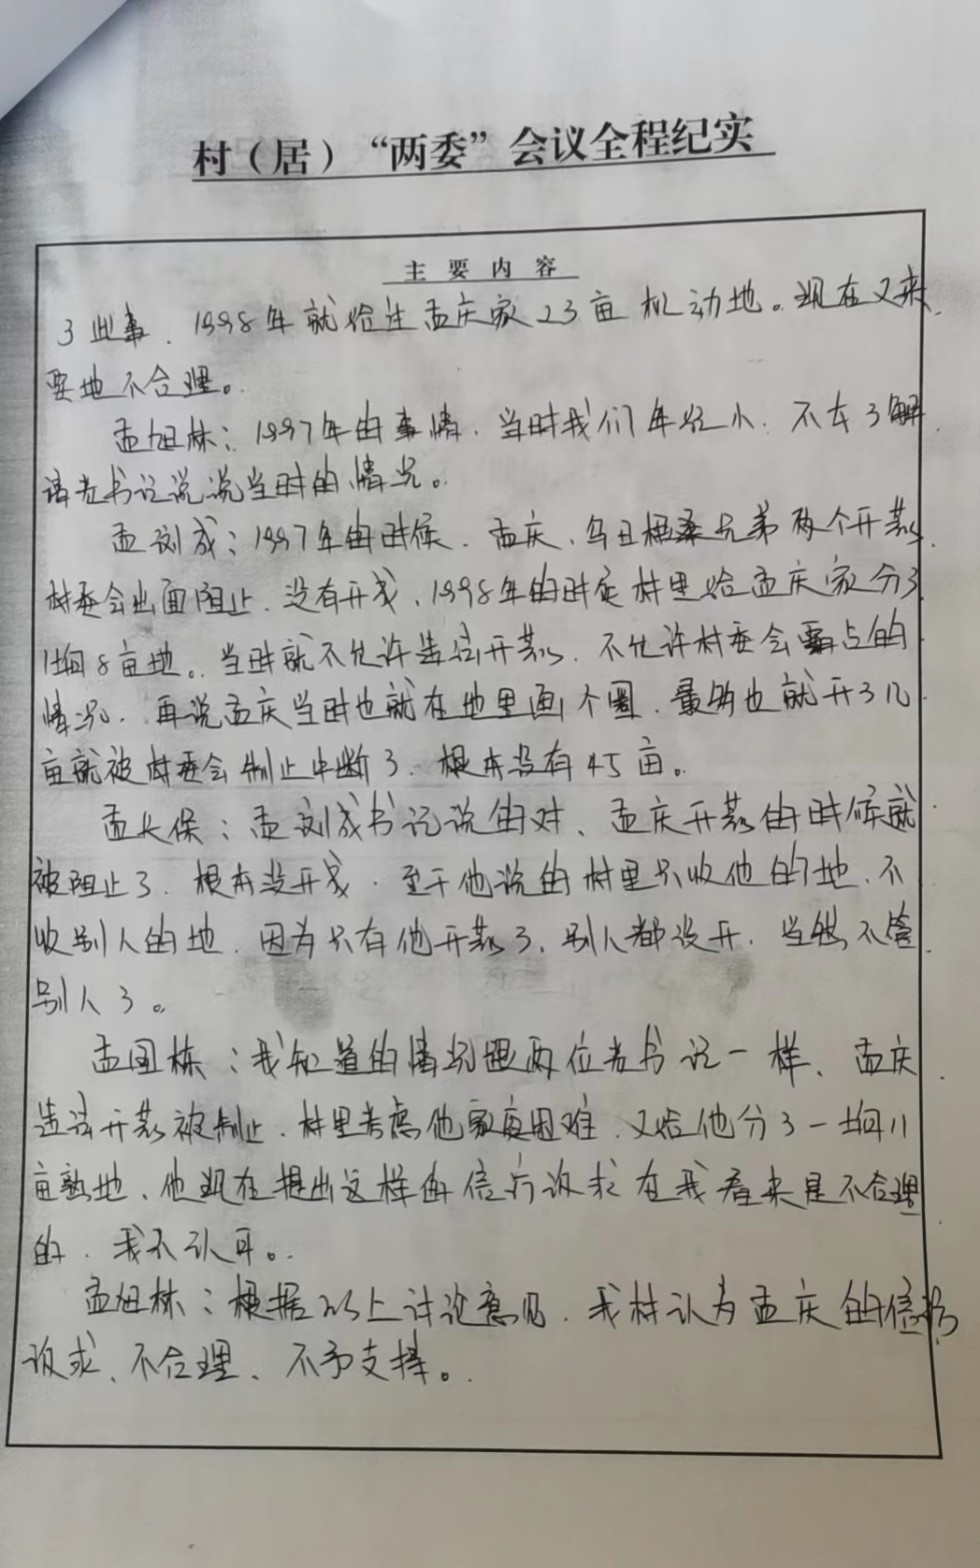 村（居）“两委”会议全程纪实
主要内容
了些事、1998年就给过孟庆家23亩机动地。现在又来
要地不合理。
孟旭林：1997年的事情、当时我们年纪小、不太了解
请老书记说说当时的情况。
孟刘成：1997年的时候、孟庆、乌日根桑兄弟两个开荒、
村委会出面阻止、没有开成、1998年的时候村里给孟庆家分了
1垧8亩地。当时就不允许违法开荒、不允许村委会占的
情况、再说孟庆当时也就在地里画个圈、最多也就开了几
亩就被村委会制止中断了、根本没有45亩。
孟长保：孟刘成书记说的对、孟庆开荒的时候就
被阻止了、根本没开成、至于他说的村里只收他的地、不
收别人的地、因为只有他开荒了、别人都没开、当然不管
别人了。
孟国栋：我知道的情况跟两位老书记一样、孟庆
违法开荒被制止、村里考虑他家庭困难、又给他分了一垧八
亩熟地、他现在提出这样的信访诉求在我看来是不合理
的、我不认可。
孟旭林：根据以上讨论意见、我村认为孟庆的信访
诉求、不合理、不予支持。